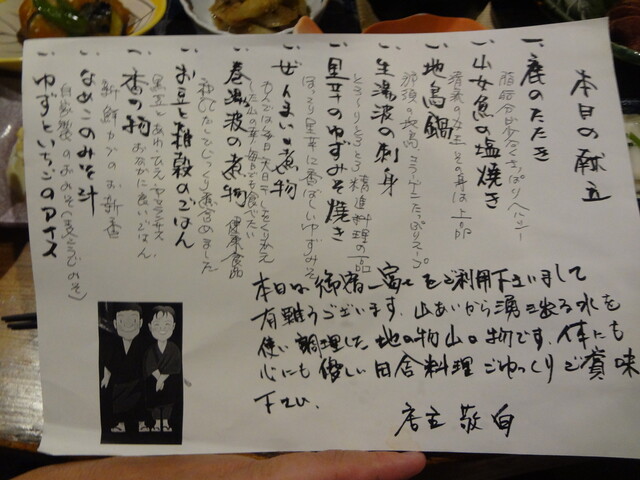 本日の献立
一、鹿のたたき
脂肪分が少なくさっぱりヘルシー
一、山女魚の塩焼き
清流の女王 その身は上品
一、地鳥鍋
那須の地鳥 コラーゲンたっぷりスープ
一、生湯波の刺身
とろ〜りとろとろ精進料理の一品
一、里芋のゆずみそ焼き
ほっこり里芋に香ばしいゆずみそ
一、ぜんまい煮物
した山の幸 毎日でも食べたい
一、巻湯波の煮物 健康食品
だしでじっくり煮含めました
一、お豆と雑穀のごはん
黒豆とあわ、ひえ、
おなかに良いごはん
一、香の物
新鮮カブのお新香
一、なめこのみそ汁
自家製のおみそ(麦こうじみそ)
一、ゆずといちごのアイス
本日は御宿一富士をご利用下さいまして
有難うございます。山あいから湧き出る水を
使い調理した地の物山の物です。体にも
心にも優しい田舎料理ごゆっくりご賞味
下さい。
店主 敬白